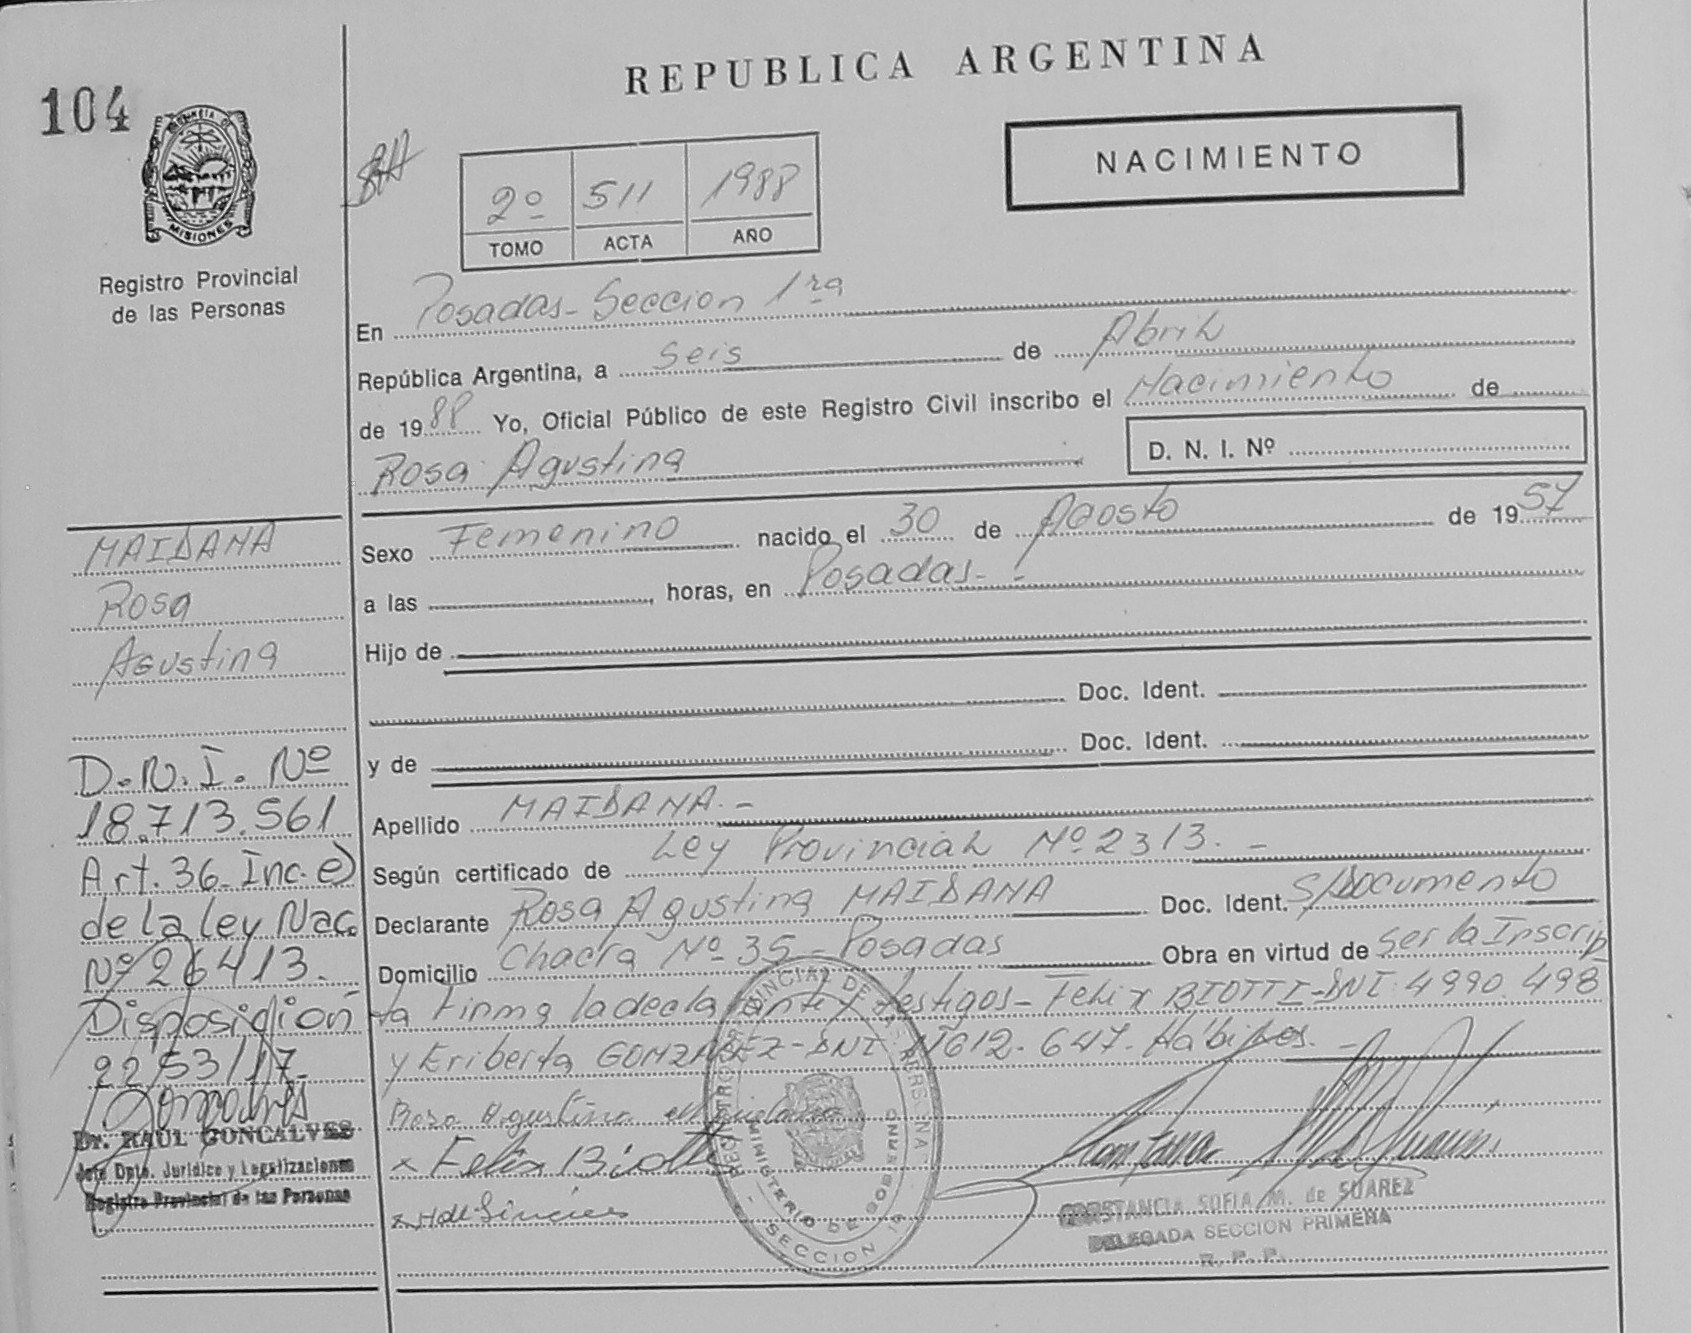 REPUBLICA ARGENTINA
104
PROVINCIA DE MISIONES
Registro Provincial
de las Personas
NACIMIENTO
2º 511 1988
TOMO ACTA AÑO
En Posadas - Seccion 1ra
República Argentina, a Seis de Abril
de 1988 Yo, Oficial Público de este Registro Civil inscribo el Nacimiento de
Rosa Agustina
D. N. I. Nº
Sexo Femenino nacido el 30 de Agosto de 1957
a las horas, en Posadas - -
Hijo de
Doc. Ident.
y de Doc. Ident.
Apellido MAIDANA. -
Según certificado de Ley Provincial Nº 2313. -
Declarante Rosa Agustina MAIDANA Doc. Ident. S/Documento
Domicilio Chacra Nº 35 - Posadas Obra en virtud de Ser la Inscrip
ta Firma la declarante y testigos - Felix BIOTTI - DNI 4990.498
y Eriberta GONZALEZ - DNI 612.647. Hábiles. -
Rosa Agustina Maidana
x Felix Biotti
MAIDANA
Rosa
Agustina
D.N.I. Nº
18.713.561
Art. 36 - Inc. e)
de la ley Nac.
Nº 26413.
Disposición
2253/17
Dr. RAUL GONCALVES
Jefe Dpto. Jurídico y Legalizaciones
Registro Provincial de las Personas
REGISTRO PROVINCIAL DE LAS PERSONAS
MINISTERIO DE GOBIERNO
SECCION 1ª
CONSTANCIA SOFIA M. de SUAREZ
DELEGADA SECCION PRIMERA
R. P. P.